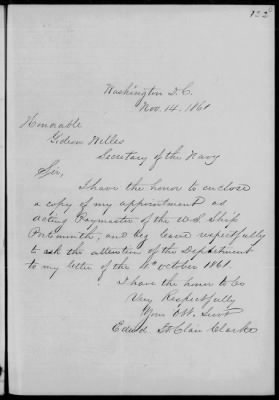 122
Washington D.C.
Nov. 14. 1861
Honorable
Gideon Welles
Secretary of the Navy
Sir,
I have the honor to enclose
a copy of my appointment as
Acting Paymaster of the U.S. Ship
Portsmouth, and beg leave respectfully
to ask the attention of the Department
to my letter of the 4th October 1861.
I have the honor to be
Very Respectfully
Your Obt. Servt
Edwd. St. Clair Clarke